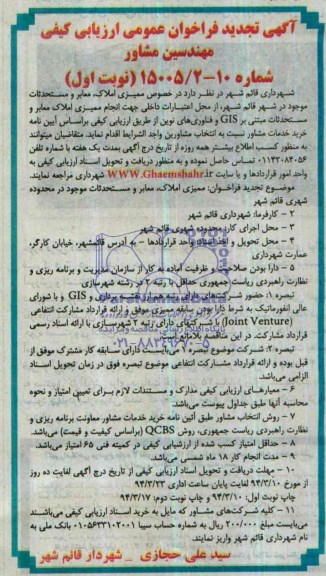 آگهی تجدید فراخوان عمومی ارزیابی کیفی
مهندسین مشاور
شماره ۱۰-۱۵۰۰۵/۲ (نوبت اول)
شهرداری قائم شهر در نظر دارد در خصوص ممیزی املاک، معابر و مستحدثات
موجود در شهر قائم شهر، از محل اعتبارات داخلی جهت انجام ممیزی املاک معابر و
مستحدثات مبتنی بر GIS و فناوری‌های نوین از طریق ارزیابی کیفی براساس آیین نامه
خرید خدمات مشاور نسبت به انتخاب مشاورین واجد الشرایط اقدام نماید. متقاضیان میتوانند
به منظور کسب اطلاع بیشتر همه روزه از تاریخ درج آگهی بمدت یک هفته با شماره تلفن
۰۱۱۴۲۰۸۴۰۵۶ تماس حاصل نموده و به منظور دریافت و تحویل اسناد ارزیابی کیفی به
واحد امور قراردادها و یا سایت www.Ghaemshahr.ir شهرداری مراجعه نمایند.
موضوع تجدید فراخوان: ممیزی املاک، معابر و مستحدثات موجود در محدوده
شهری قائم شهر
۲ – کارفرما: شهرداری قائم شهر
۳ – محل اجرای کار: محدوده شهری قائم شهر
۴ – محل تحویل و اخذ اسناد واحد قراردادها – به آدرس قائمشهر، خیابان کارگر،
عمارت شهرداری
۵ – دارا بودن صلاحیت و ظرفیت آماده به کار از سازمان مدیریت و برنامه ریزی و
نظارت راهبردی ریاست جمهوری حداقل با رتبه ۲ در رشته شهرسازی
تبصره ۱: حضور شرکت‌های دارای رتبه همتراز نقشه برداری و GIS و یا شورای
عالی انفورماتیک به شرط دارا بودن سابقه ممیزی موفق و ارائه قرارداد مشارکت انتفاعی
(Joint Venture) با شرکتهای دارای رتبه ۲ شهرسازی با ارائه اسناد رسمی
قرارداد مشارکت، در این مناقصه بلامانع می
۰۲۱-۸۸۳۴۹۶۷۰-۵
تبصره ۲: شرکت موضوع تبصره ۱ می‌بایست دارای مسابقه کار مشترک موفق از
قبل بوده و ارائه قرارداد مشارکت انتفاعی موضوع تبصره فوق در زمان تحویل اسناد
الزامی می‌باشد.
۶ – معیارهای ارزیابی کیفی مدارک و مستندات لازم برای تعیین امتیاز و نحوه
محاسبه آنها طبق جداول پیوست می‌باشد.
۷ – روش انتخاب مشاور طبق آئین نامه خرید خدمات مشاور معاونت برنامه ریزی و
نظارت راهبردی ریاست جمهوری، روش QCBS (براساس کیفیت و قیمت) می‌باشد.
۸ – حداقل امتیاز کسب شده از ارزشیابی کیفی در کمیته فنی ۶۵ امتیاز می‌باشد.
۹ – مدت انجام کار ۱۸ ماه شمسی می‌باشد.
۱۰ – مهلت دریافت و تحویل اسناد ارزیابی کیفی از تاریخ درج آگهی لغایت ده روز
از مورخ ۹۴/۳/۱۰ لغایت پایان ساعت اداری ۹۴/۳/۲۳
چاپ نوبت اول: ۹۴/۳/۱۰ و چاپ نوبت دوم: ۹۴/۳/۱۷
۱۱ – کلیه شرکت‌های مشاور که مایل به خرید اسناد ارزیابی کیفی می‌باشند
می‌بایست مبلغ ۲۰۰/۰۰۰ ریال به شماره حساب سیبا ۰۱۰۵۶۳۳۱۰۲۰۰۱ بانک ملی به
نام شهرداری قائم شهر واریز نمایند.
سید علی حجازی – شهردار قائم شهر